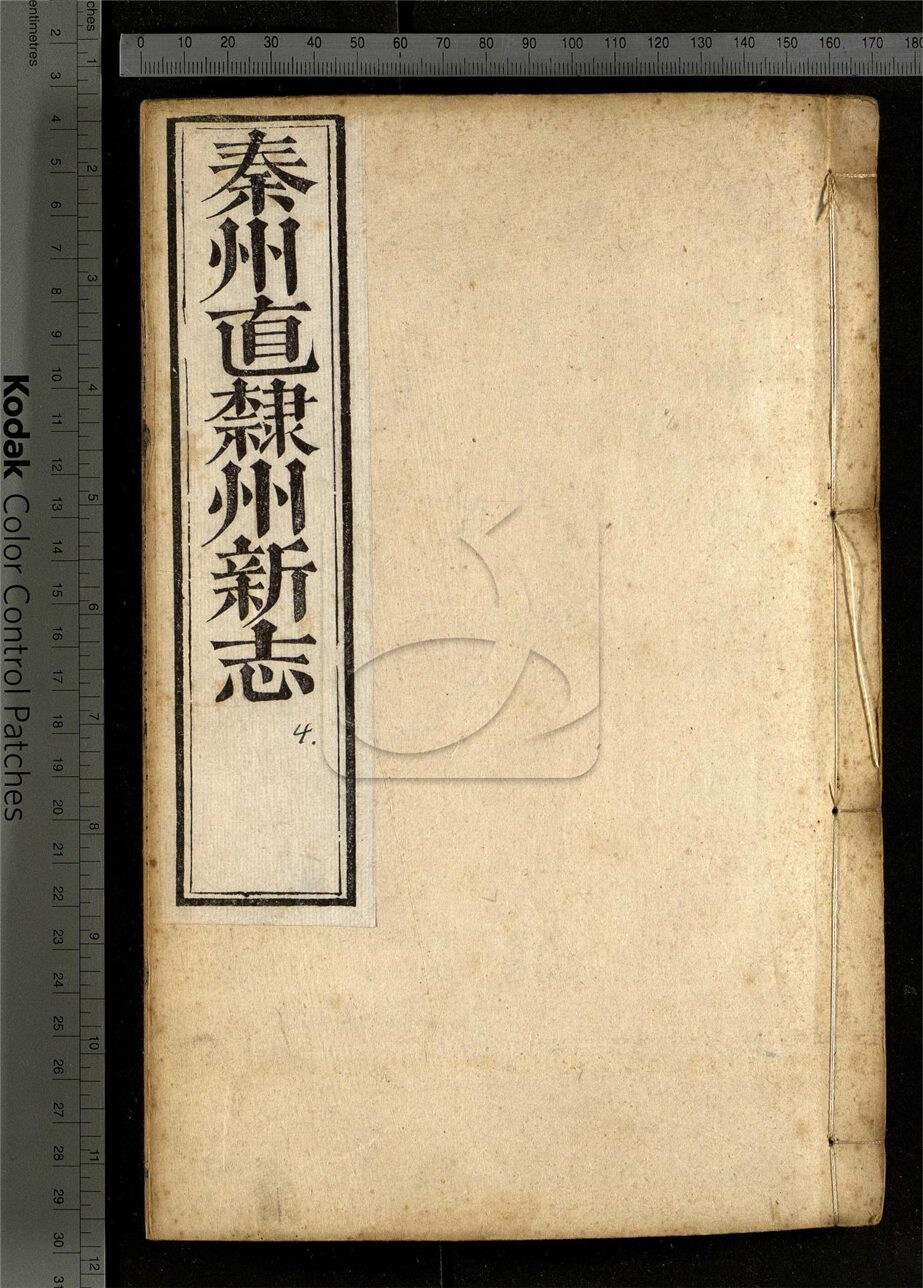 秦州直隸州新志
4.
0 10 20 30 40 50 60 70 80 90 100 110 120 130 140 150 160 170 180
Kodak Color Control Patches
ches
1 2 3 4 5 6 7 8 9 10 11 12
entimetres
2 3 4 5 6 7 8 9 10 11 12 13 14 15 16 17 18 19 20 21 22 23 24 25 26 27 28 29 30 31